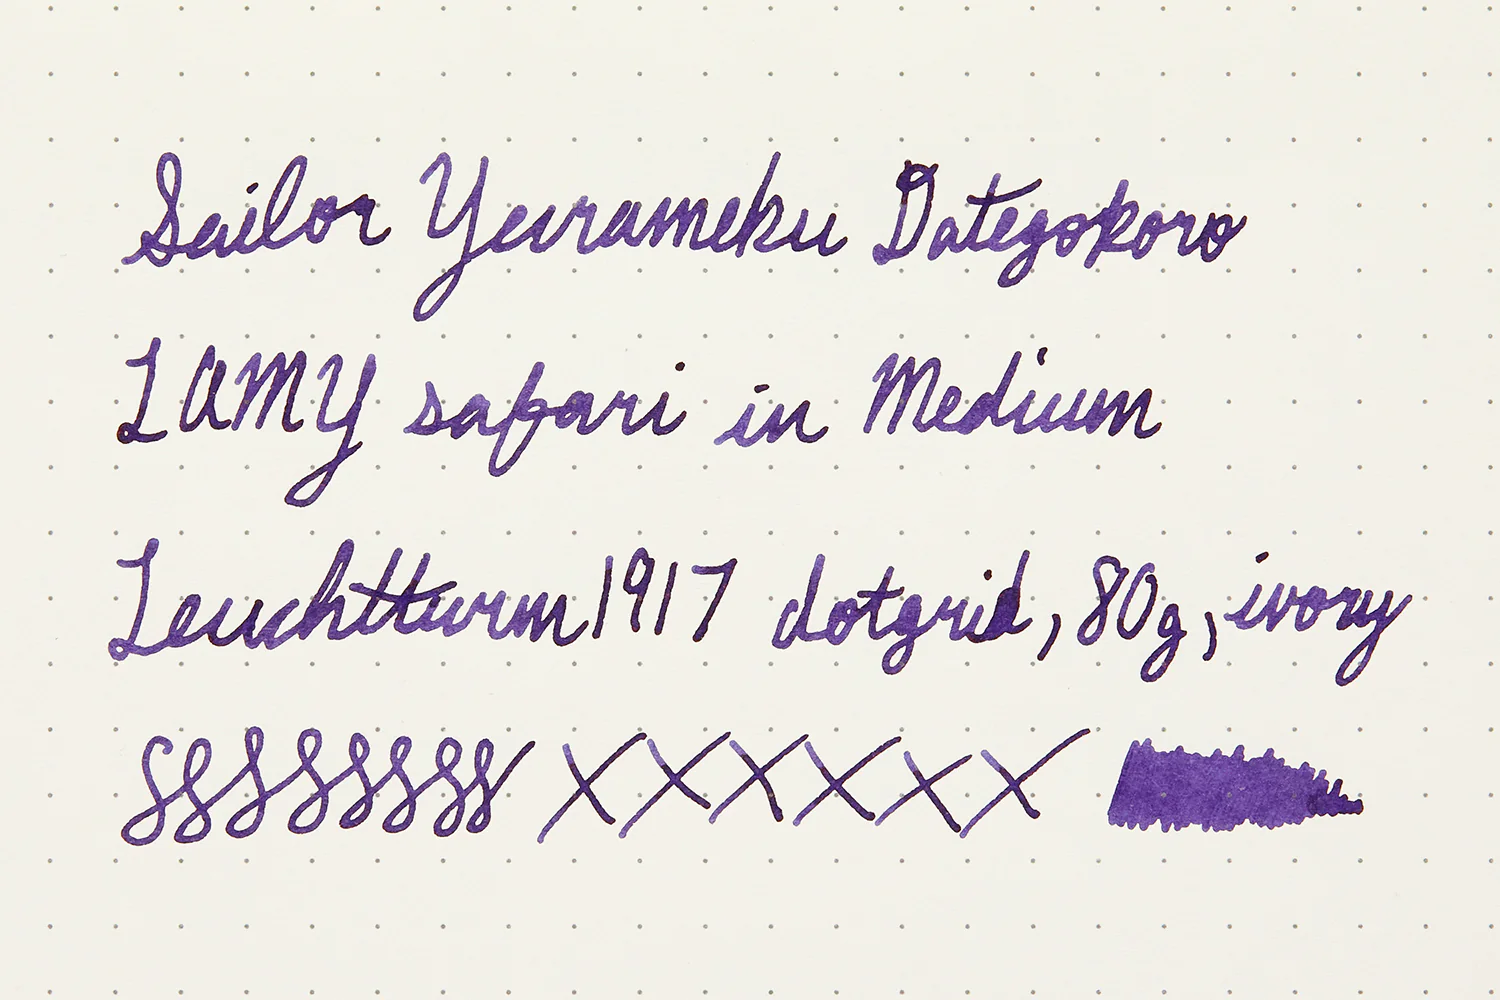 Sailor Yurameku Dategokoro
LAMY safari in Medium
Leuchtturm1917 dotgrid, 80g, ivory